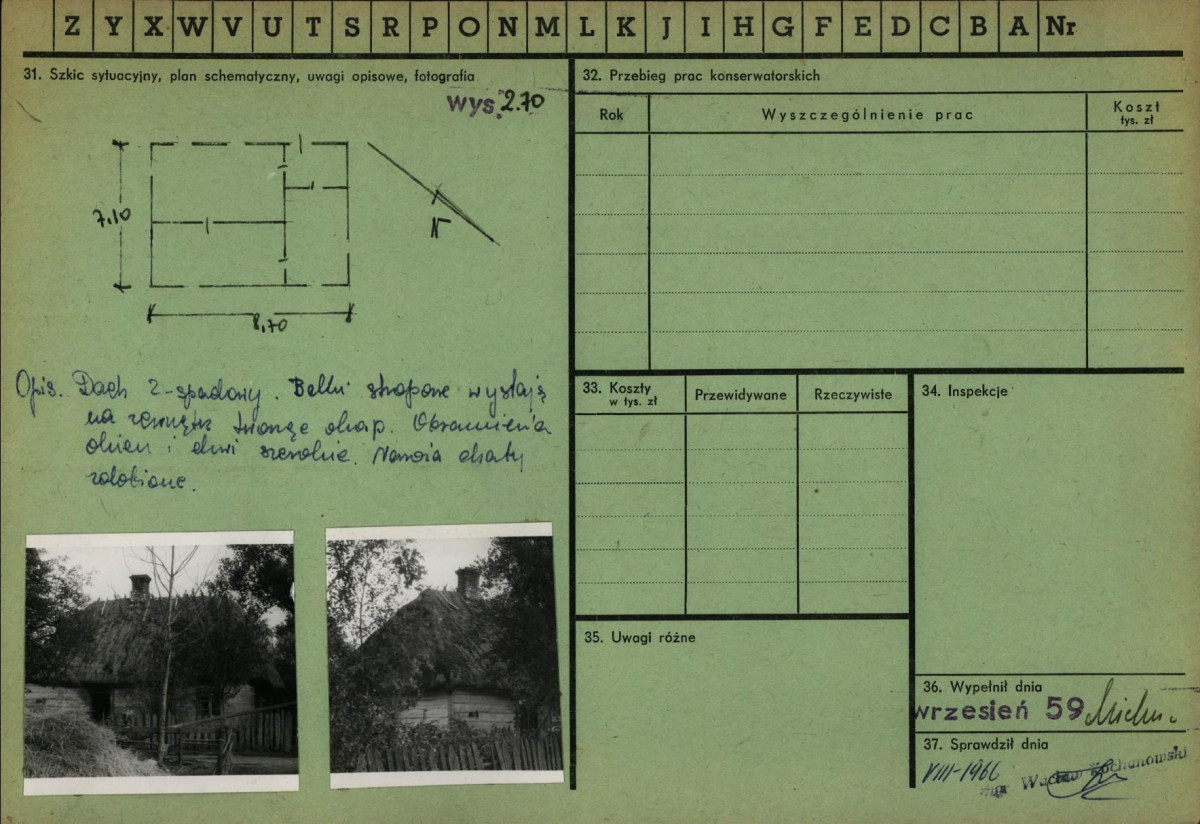 Z Y X W V U T S R P O N M L K J I H G F E D C B A Nr
31. Szkic sytuacyjny, plan schematyczny, uwagi opisowe, fotografia
wys. 2.70
7,10
N
8,70
Opis. Dach 2-spadowy. Belki stropowe wystają
na zewnątrz tworząc okap. Obramienia
okien i drzwi szerokie. Naroża chaty
zdobione.
32. Przebieg prac konserwatorskich
Rok
Wyszczególnienie prac
Koszt
tys. zł
33. Koszty
w tys. zł
Przewidywane
Rzeczywiste
34. Inspekcje
35. Uwagi różne
36. Wypełnił dnia
wrzesień 59
37. Sprawdził dnia
VIII-1966
mgr Wacław Kochanowski